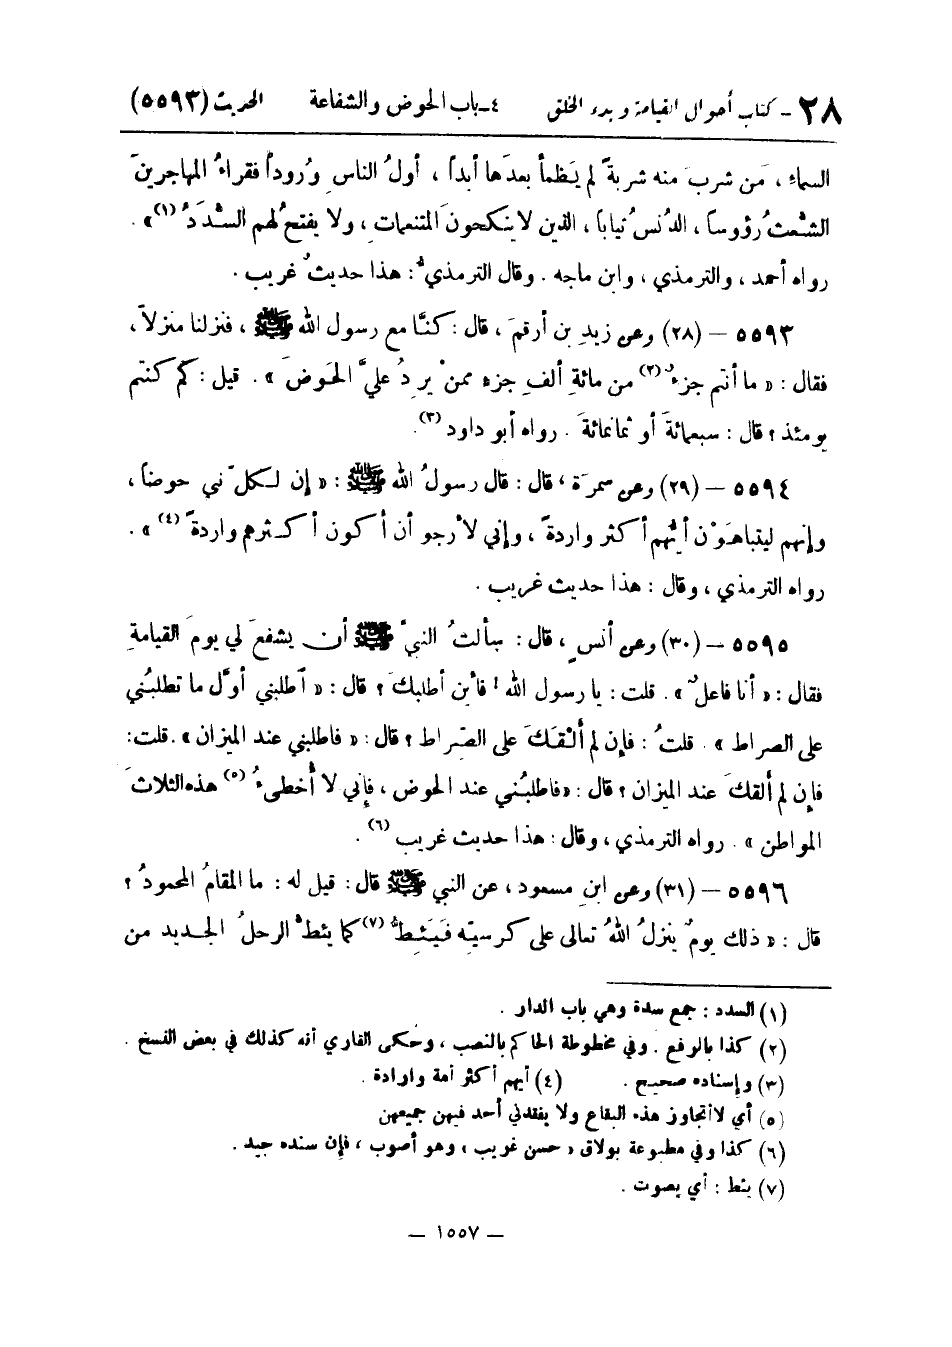 ٢٨ - كتاب أحوال القيامة وبدء الخلق ٤-باب الحوض والشفاعة الحديث (٥٥٩٣)
السماءِ ، مَن شربَ منه شربةً لم يَظمأ بعدَها أبداً ، أولُ الناسِ وُروداً فقراءُ المهاجرينَ
الشُّعثُ رؤوساً ، الدُّنسُ ثياباً ، الذين لا ينكحونَ المتنعمات ، ولا يفتحُ لهم السُّدَدُ (١) » .
رواه أحمد ، والترمذي ، وابن ماجه . وقال الترمذيُّ : هذا حديثٌ غريب .
٥٥٩٣ – (٢٨) وعن زيدِ بن أرقمَ ، قال : كنَّا مع رسول الله ﷺ ، فنزلنا منزلاً ،
فقال : « ما أنتم جزءٌ (٢) من مائةِ ألفِ جزء ممن يردُ عليَّ الحَوضَ » . قيل : كم كنتم
يومئذ ؟ قال : سبعمائةَ أو ثمانمائةَ . رواه أبو داود (٣) .
٥٥٩٤ – (٢٩) وعن سمرَة ، قال : قال رسولُ الله ﷺ : « إن لكلِّ نبي حوضاً ،
وإنهم ليتباهَوْن أيُّهم أكثر واردةً ، وإني لأرجو أن أكون أكثرهم واردةً (٤) » .
رواه الترمذي ، وقال : هذا حديث غريب .
٥٥٩٥ – (٣٠) وعن أنسٍ ، قال : سألتُ النبيَّ ﷺ أن يشفعَ لي يومَ القيامةِ
فقال : « أنا فاعلٌ » . قلت : يا رسول الله ! فأين أطلبكَ ؟ قال : « أطلبني أوَّل ما تطلبُني
على الصراط » . قلتُ : فإن لم ألقَكَ على الصِّراط ؟ قال : « فاطلبني عند الميزان » . قلت :
فإن لم ألقكَ عند الميزان ؟ قال : « فاطلبُني عند الحوض ، فإني لا أُخطىءُ (٥) هذه الثلاثَ
المواطن » . رواه الترمذي ، وقال : هذا حديث غريب (٦) .
٥٥٩٦ – (٣١) وعن ابنِ مسعود ، عن النبي ﷺ قال : قيل له : ما المقامُ المحمودُ ؟
قال : « ذلك يومٌ ينزلُ اللهُ تعالى على كرسيِّه فَيَئِطُّ (٧) كما يئطُّ الرحلُ الجديد من
(١) السدد : جمع سدة وهي باب الدار .
(٢) كذا بالرفع . وفي مخطوطة الحاكم بالنصب ، وحكى القاري أنه كذلك في بعض النسخ .
(٣) وإسناده صحيح . (٤) أيهم أكثر أمة واردة .
(٥) أي لا أتجاوز هذه البقاع ولا يفقدني أحد فيهن جميعهن
(٦) كذا وفي مطبوعة بولاق « حسن غريب » وهو أصوب ، فإن سنده جيد .
(٧) يئط : أي يصوت .
– ١٥٥٧ –